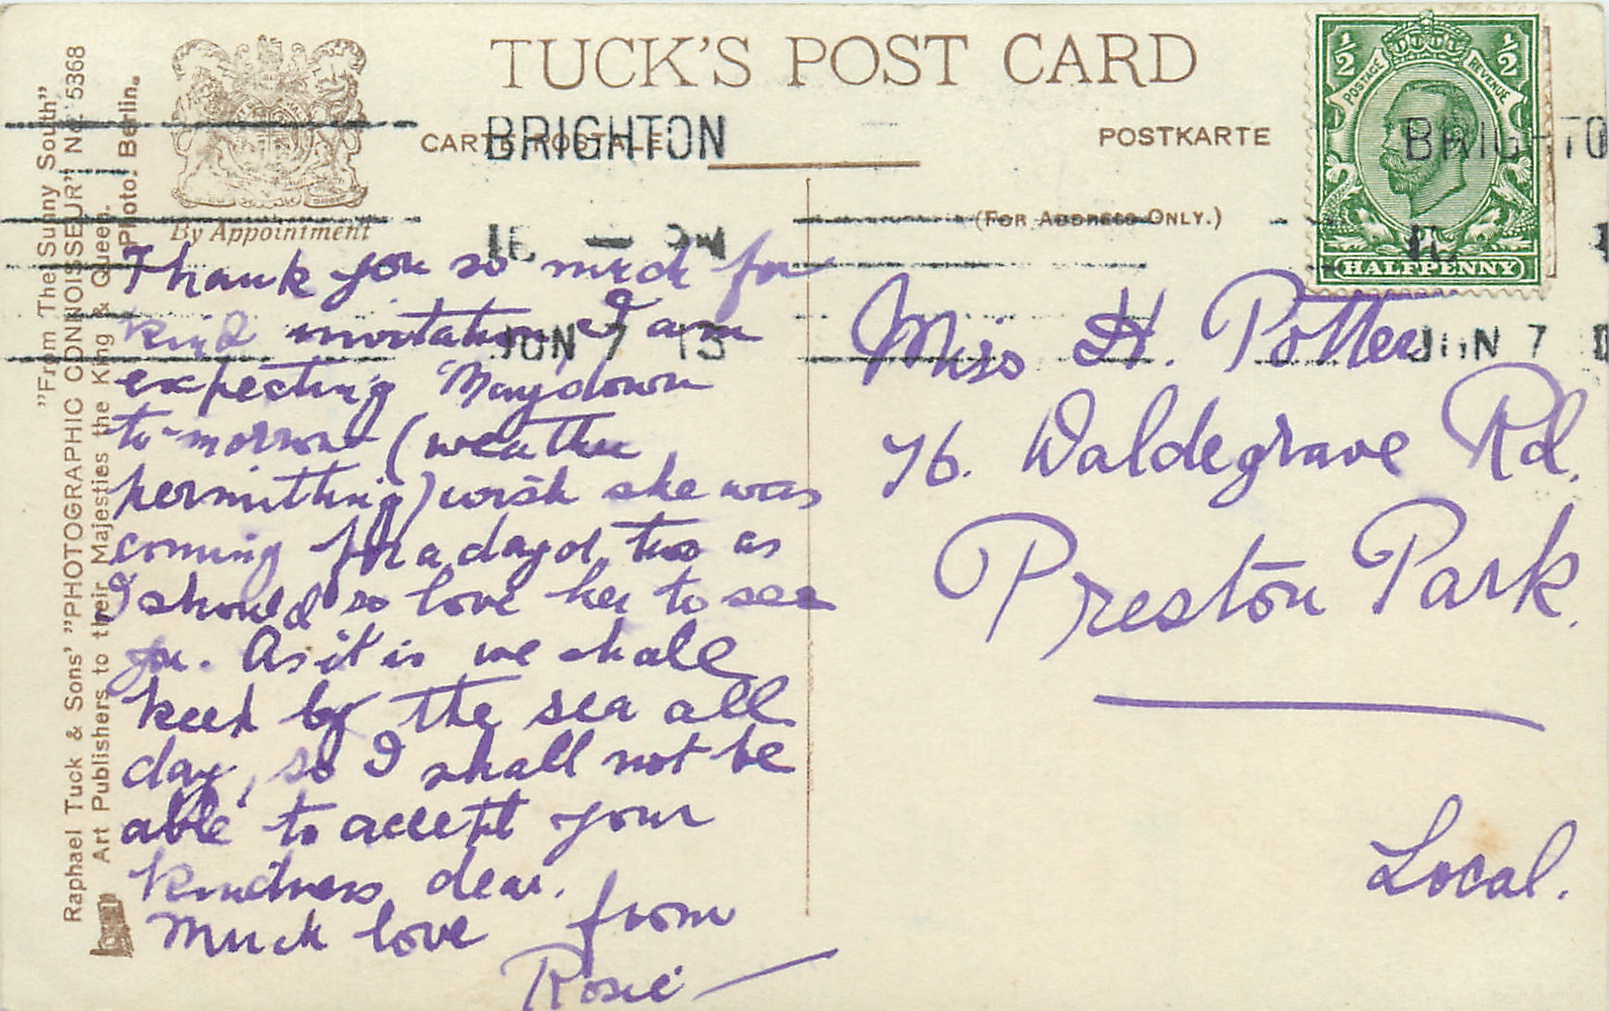 TUCK'S POST CARD
CARTE POSTALE
POSTKARTE
(FOR ADDRESS ONLY.)
By Appointment
BRIGHTON
JUN 7 13
BRIGHTO
JUN 7
½ ½
POSTAGE REVENUE
HALFPENNY
"From The Sunny South"
Raphael Tuck & Sons' "PHOTOGRAPHIC CONNOISSEUR" No. 5368
Art Publishers to their Majesties the King & Queen.
Photo: Berlin.
Thank you so much for
kind invitation I am
expecting May down
to-morrow (weather
permitting) wish she was
coming for a day or two as
I should so love her to see
you. As it is we shall
keep by the sea all
day, so I shall not be
able to accept your
kindness dear.
Much love from
Rosie
Miss H. Potter
76. Waldegrave Rd.
Preston Park.
Local.